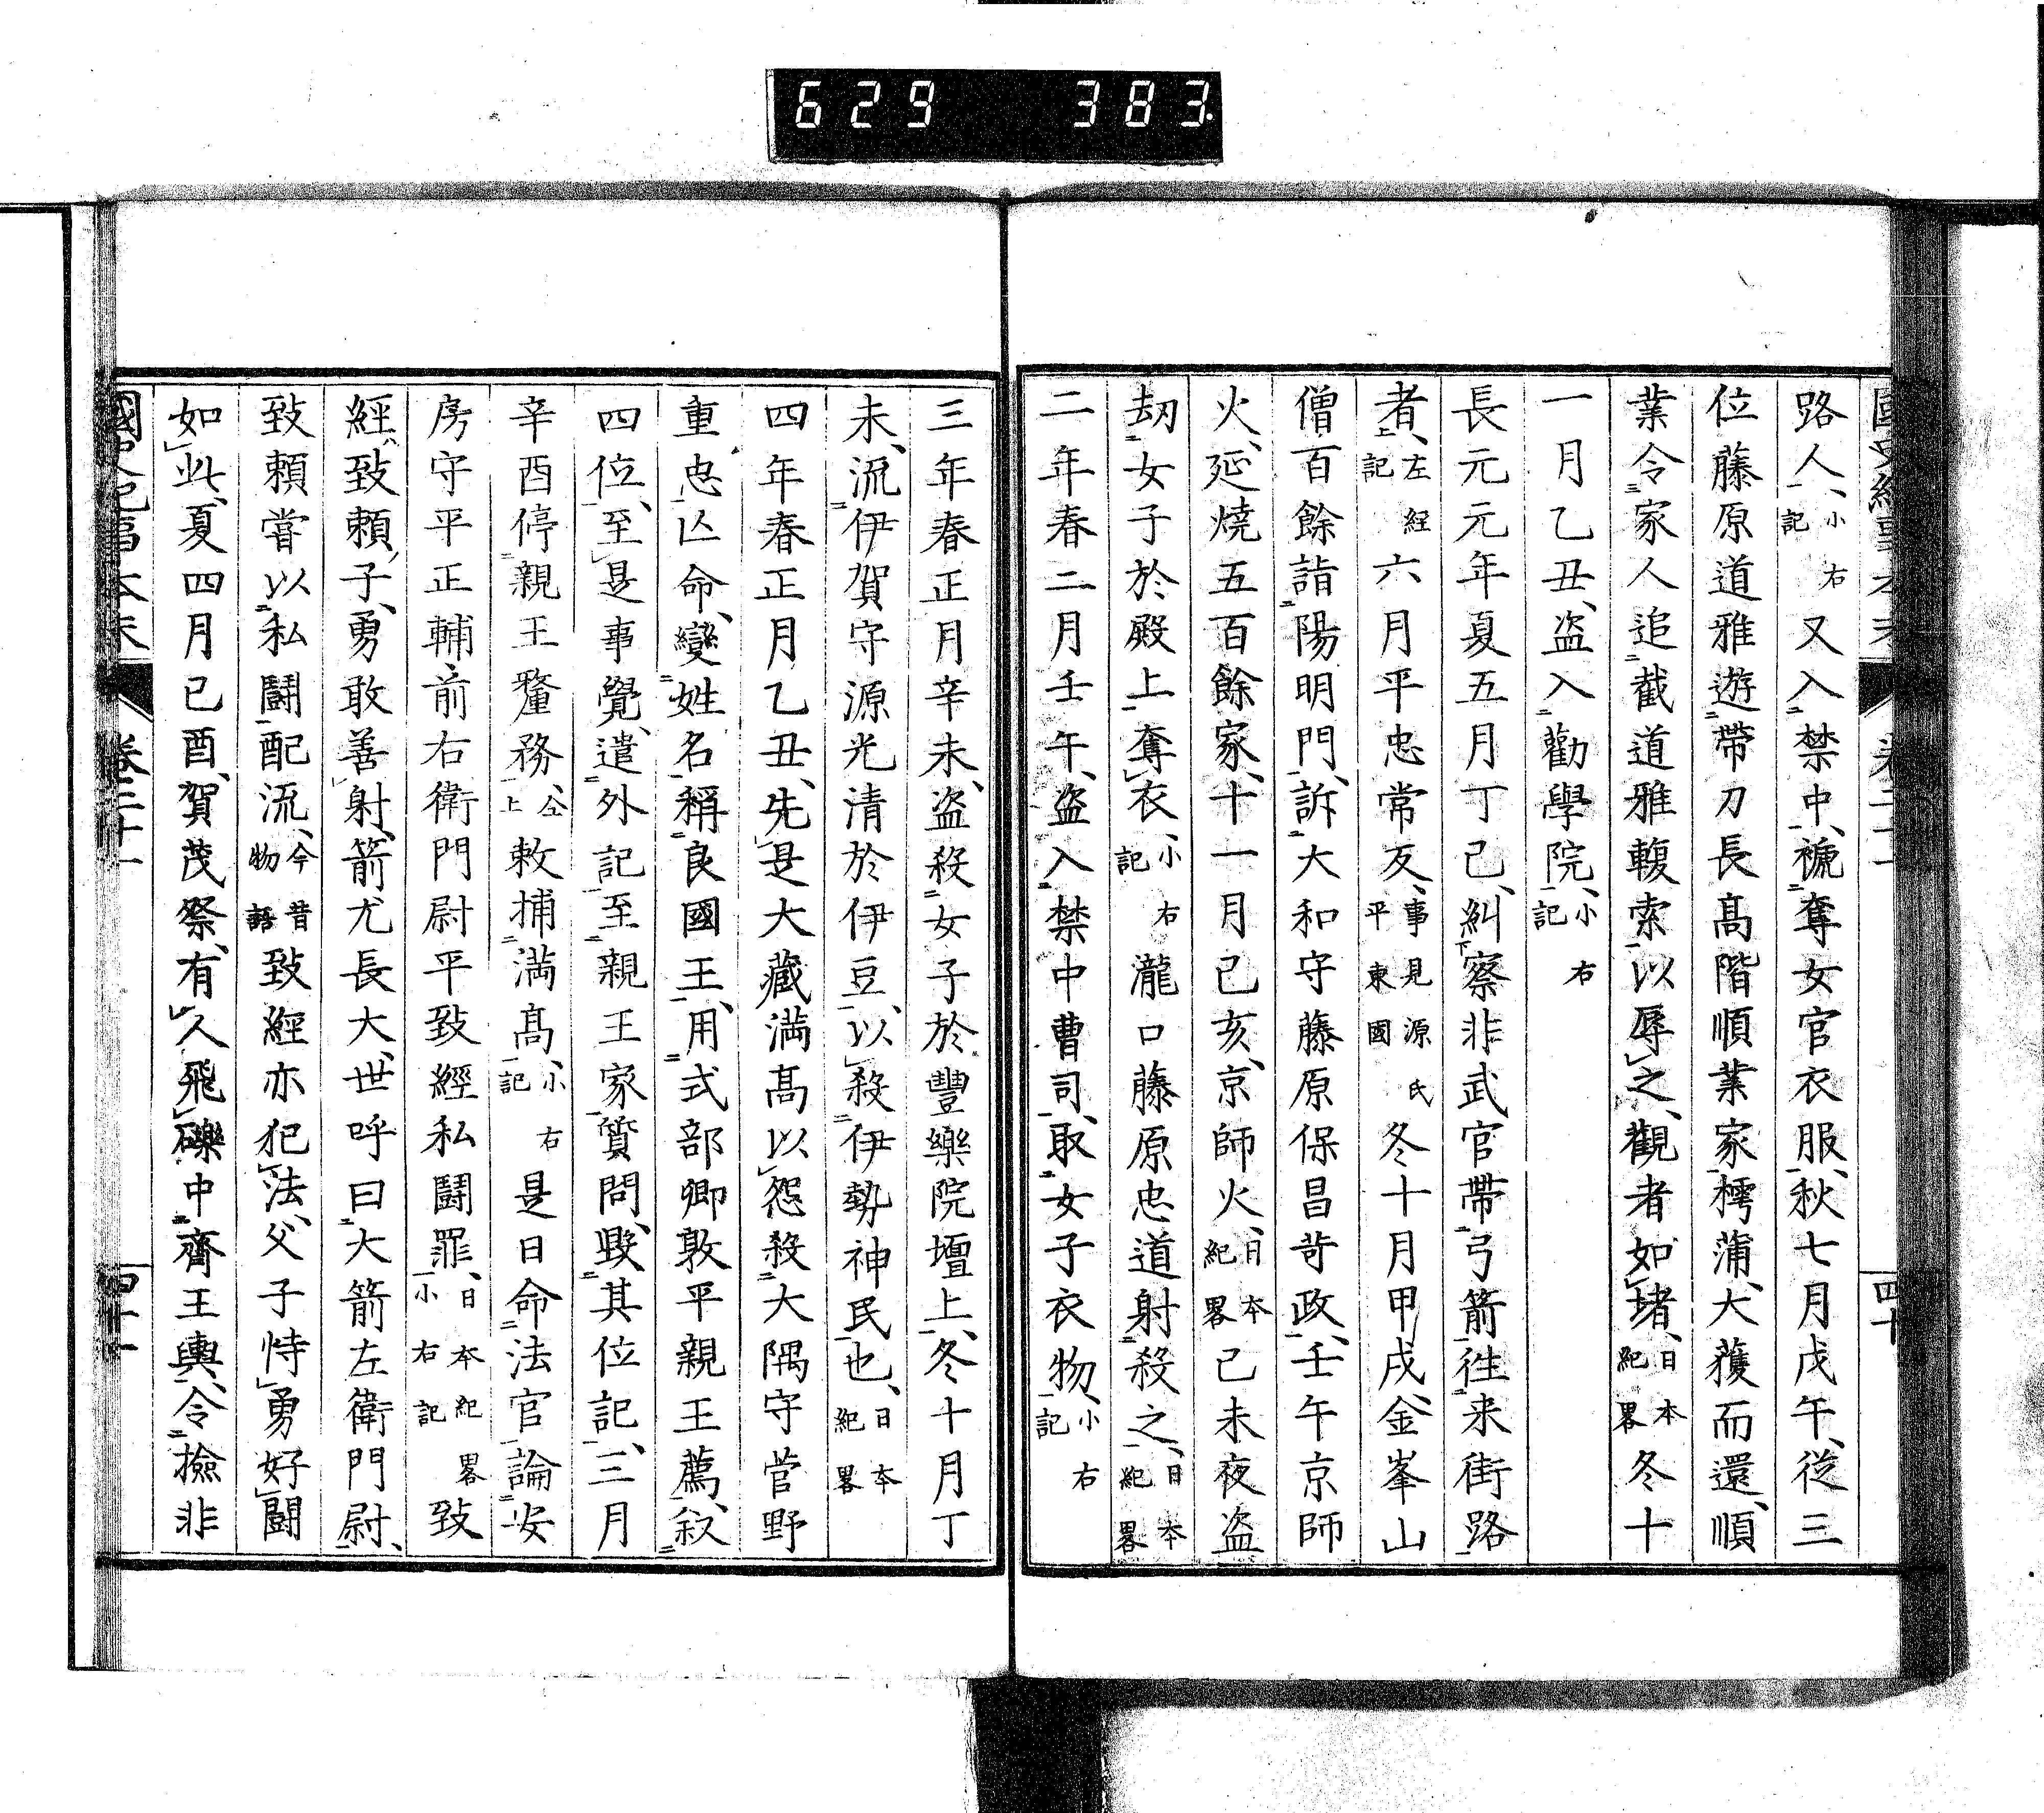 629 383
國史紀事本末 卷二十一 四十
路人、小右記又入禁中、褫奪女官衣服、秋七月戊午、從三
位藤原道雅遊帶刀長高階順業家樗蒲、大獲而還、順
業令家人追截道雅輹索以辱之、觀者如堵、日本紀畧冬十
一月乙丑、盗入勸學院、小右記
長元元年夏五月丁巳、糾察非武官帶弓箭往来街路
者、左經上記六月平忠常反、事見源氏平東國冬十月甲戌、金峯山
僧百餘詣陽明門、訴大和守藤原保昌苛政、壬午京師
火、延燒五百餘家、十一月己亥、京師火、日本紀畧己未夜盗
刼女子於殿上奪衣、小右記瀧口藤原忠道射殺之、日本紀畧
二年春二月壬午、盗入禁中曹司、取女子衣物、小右記
三年春正月辛未、盗殺女子於豐樂院壇上、冬十月丁
未、流伊賀守源光清於伊豆、以殺伊勢神民也、日本紀畧
四年春正月乙丑、先是大藏満高以怨殺大隅守菅野
重忠亾命、變姓名稱良國王、用式部卿敦平親王薦、叙
四位、至是事覺、遣外記至親王家質問、毀其位記、三月
辛酉停親王釐務、仝上敕捕満高、小右記是日命法官論安
房守平正輔、前右衛門尉平致經私鬪罪、日本紀畧小右記致
經、致頼子、勇敢善射、箭尤長大、世呼曰大箭左衛門尉、
致頼嘗以私鬪配流、今昔物語致經亦犯法、父子恃勇好鬪
如此、夏四月己酉、賀茂祭、有人飛礫中齊王輿、令撿非
國史紀事本末 卷二十一 四十一